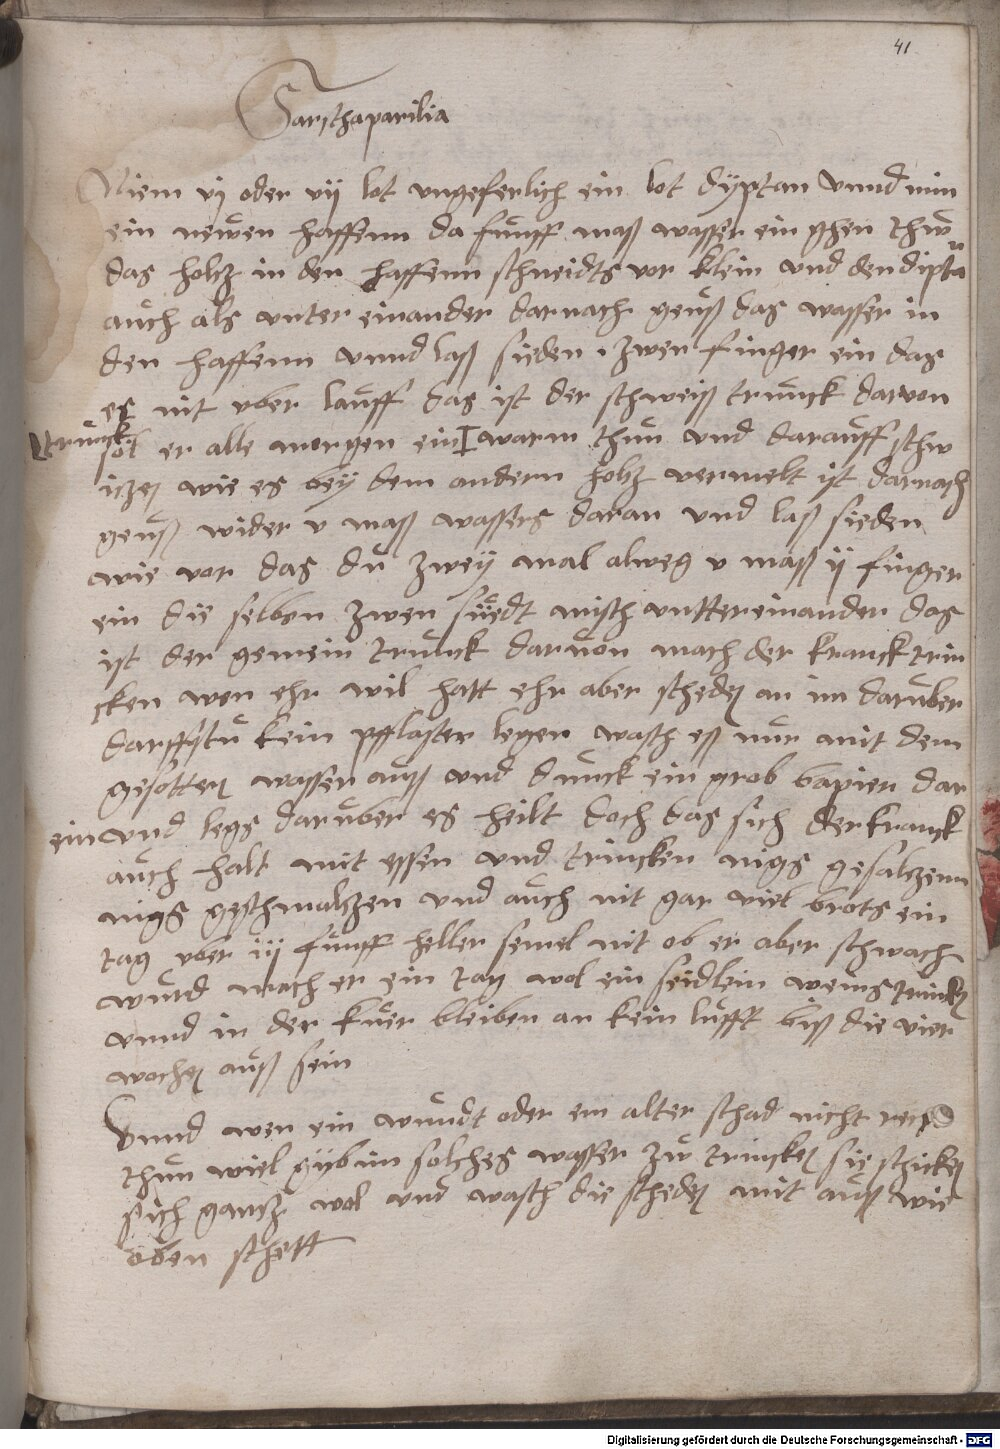 41
Sarsthaparilia
Niem vj oder vij lot vngeferlich ein lot dyptan vnnd nim
ein newen haffenn da funff maß wasser ein ghen thw
das holcz in den haffenn schneidts vor klein vnd den diptan
auch als vnter einander darnach geuß das wasser in
den haffenn vnnd laß sieden . zwen finger ein das
es nit vber lauff das ist der schweiß trunck darvon
sol er alle morgen ein trunck warm thun vnd darauff schw
iczen wie es bey dem andern holtz vermelt ist darnach
geuß wider v maß wassers daran vnd laß sieden
wie vor das du zwey mal alweg v maß ij finger
ein die selben zwen suedt misch vnttereinander das
ist der gemein trunck darvon mach der kranck trin
cken wen ehr wil hatt ehr aber scheden an im daruber
darffstu kein pflaster legen wasch eß nur mit dem
gesotten wasser auß vnd dunck ein grob bapier dar
ein vnd legs daruber es heilt doch das sich der kranck
auch halt mit essen vnd trincken nigs gesalczenn
nigs geschmalczen vnd auch nit gar viel brots ein
tag vber iij funff heller semel nit ob er aber schwach
wurd mach er ein tag wol ein seidlein weins trincken
vnnd in der kuer bleiben an kein lufft biß die vier
wochen auß sein
Vnnd wen ein wundt oder ein alter schad nicht recht
thun wiel gyb im solches wasser zu trincken sie schicken
sich gancz wol vnd wasch die scheden mit auß wie
oben schett
Digitalisierung gefördert durch die Deutsche Forschungsgemeinschaft - DFG